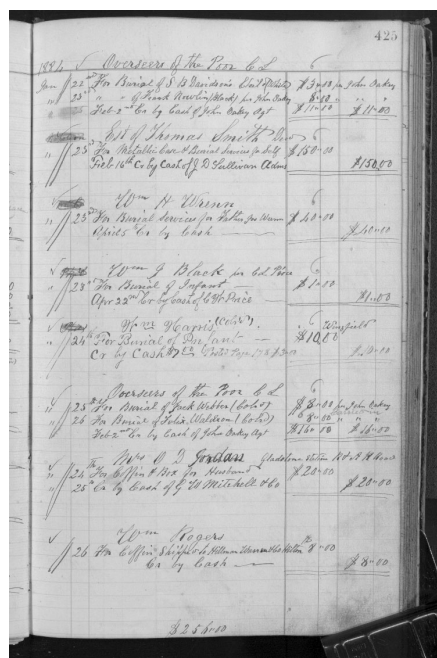 425
1884 Overseers of the Poor C L
Jan 23rd For Burial of S B Davidson's $3.00 per John Oakey
" 25 " " of Frank (Black) per John Oakey 8.00 " "
" Feb 2nd Cr by Cash of John Oakey Agt $11.00 $11.00
Est of Thomas Smith
" 23 For Metallic Case & Burial Services for Self $150.00
Feb 16th Cr by Cash of J D Sullivan Adms $150.00
Wm H Wrenn
" 23rd For Burial Services for Father $40.00
April 5 Cr by Cash $40.00
Wm J Black per
" 23rd For Burial of Infant $1.00
Apr 22nd Cr by Cash of Price $1.00
Wm Harris (Col'd) Wingfield
" 24th For Burial of Infant $10.00
Cr by Cash
Overseers of the Poor C L
" 25th For Burial of Jack Webster (Col'd) $8.00 per John Oakey
" 26 For Burial of Felix Waldron (Col'd) 8.00 " "
Feb 2nd Cr by Cash of John Oakey Agt $16.00 $16.00
Mrs O D Jordan Gladstone
" 24th For Coffin & Box for Husband $20.00
" 25th Cr by Cash of G W Mitchell & Co $20.00
Wm Rogers
" 26 For Coffin Shipped to 8.00
Cr by Cash $8.00
$256.00